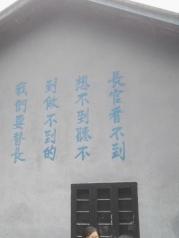 長官看不到
想不到聽不
到做不到的
我們要替長